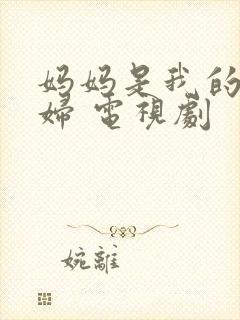 妈妈是我的
婦 電視劇
婉離